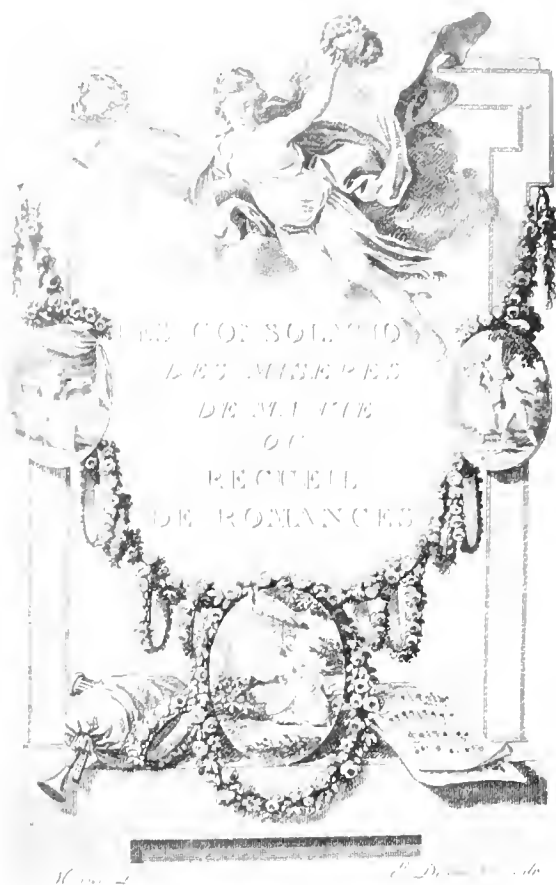 LES CONSOLATIONS
DES MISERES
DE MA VIE
OU
RECUEIL
DE ROMANCES